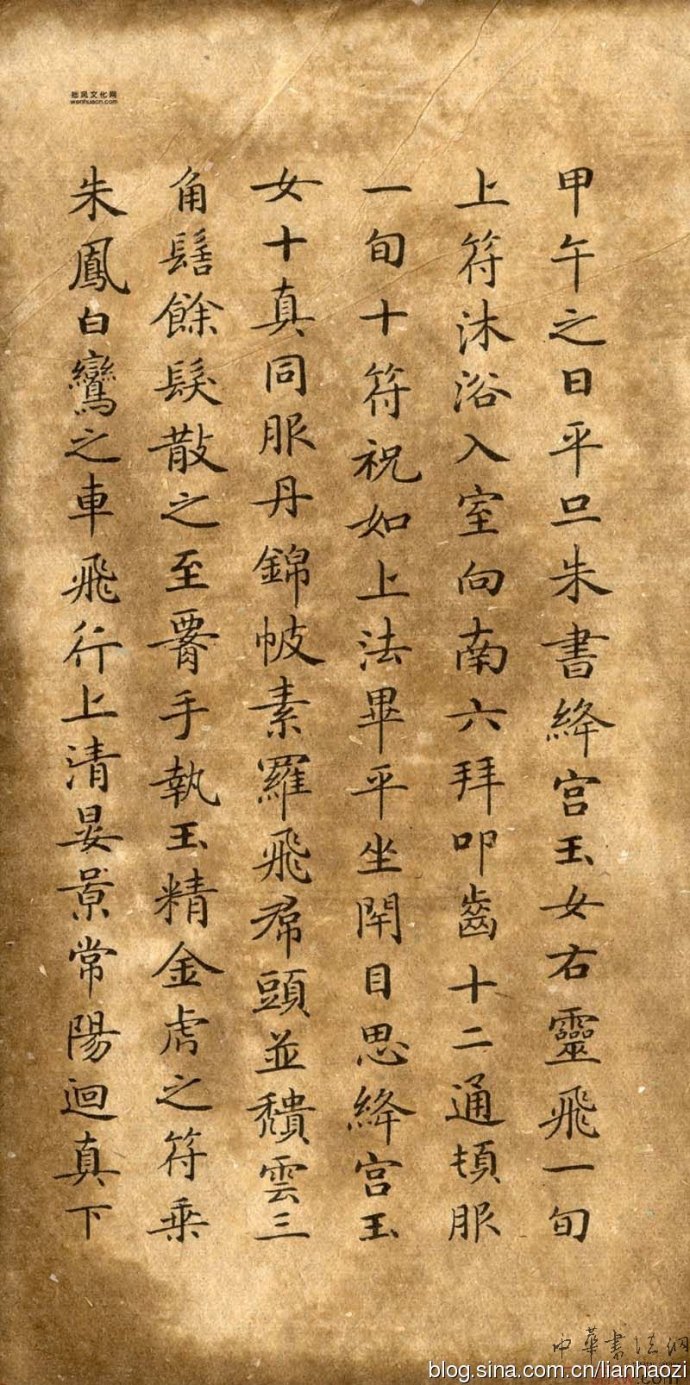 甲午之日平旦朱書絳宮玉女右靈飛一旬
上符沐浴入室向南六拜叩齒十二通頓服
一旬十符祝如上法畢平坐閇目思絳宮玉
女十真同服丹錦帔素羅飛帬頭並頹雲三
角髻餘髮散之至腰手執玉精金虎之符乗
朱鳳白鸞之車飛行上清晏景常陽迴真下
拙风文化网
wenhuacn.com
中華書法網
blog.sina.com.cn/lianhaozi